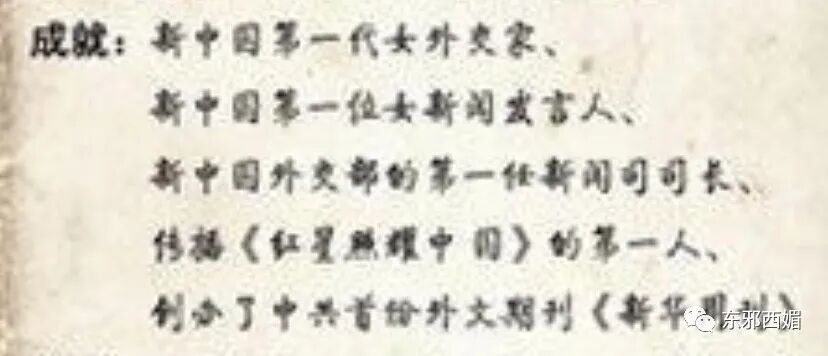 成就：新中国第一代女外交家、
新中国第一位女新闻发言人、
新中国外交部的第一任新闻司司长、
传播《红星照耀中国》的第一人、
创办了中共首份外文期刊《新华周刊》
东邪西媚